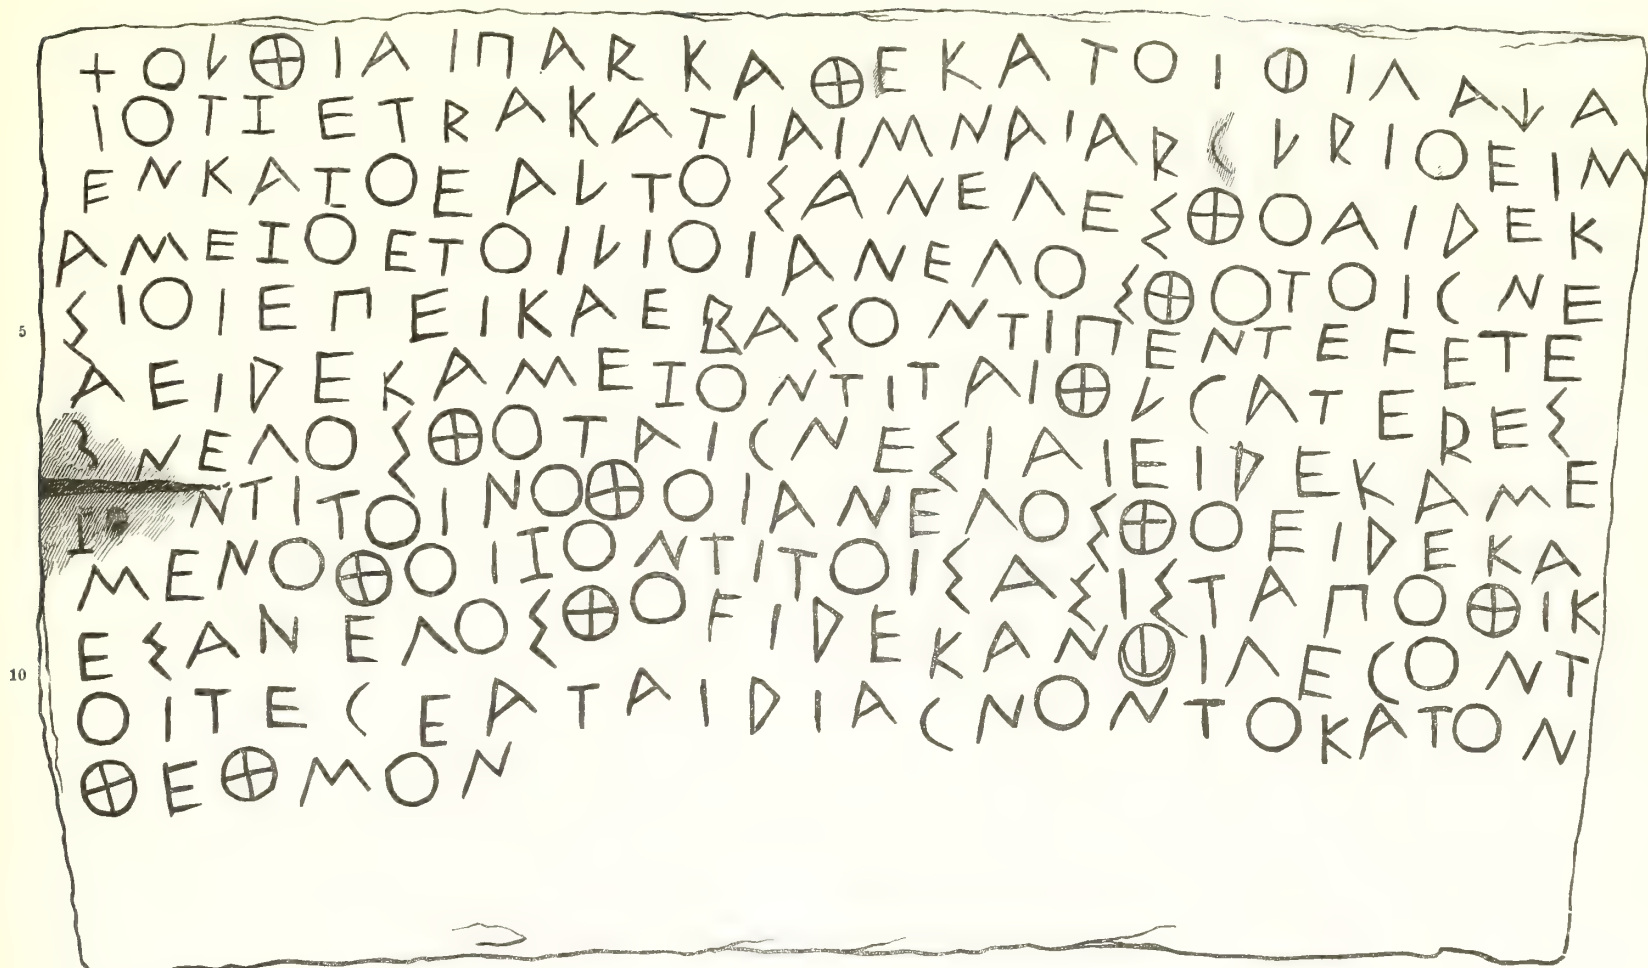 ΞΟΥΘΙΑΙΠΑΡΚΑΘΕΚΑΤΟΙΦΙΛΑΧΑ
ΙΟΤΖΕΤΡΑΚΑΤΙΑΙΜΝΑΙΑΡΓΥΡΙΟΕΙΜ
ΕΝΚΑΖΟΕΑΥΤΟΣΑΝΕΛΕΣΘΟΑΙΔΕΚ
ΑΜΕΖΟΕΤΟΙΥΙΟΙΑΝΕΛΟΣΘΟΤΟΙΓΝΕ
5 ΣΙΟΙΕΠΕΙΚΑΕΒΑΣΟΝΤΙΠΕΝΤΕϜΕΤΕ
ΑΕΙΔΕΚΑΜΕΖΟΝΤΙΤΑΙΘΥΓΑΤΕΡΕΣ
ΝΕΛΟΣΘΟΤΑΙΓΝΕΣΙΑΙΕΙΔΕΚΑΜΕ
ΖΟΝΤΙΤΟΙΝΟΘΟΙΑΝΕΛΟΣΘΟΕΙΔΕΚΑ
ΜΕΝΟΘΟΙΖΟΝΤΙΤΟΙΣΑΣΙΣΤΑΠΟΘΙΚ
10 ΕΣΑΝΕΛΟΣΘΟϜΙΔΕΚΑΝΦΙΛΕΓΟΝΤ
ΟΙΤΕΓΕΑΤΑΙΔΙΑΓΝΟΝΤΟΚΑΤΟΝ
ΘΕΘΜΟΝ